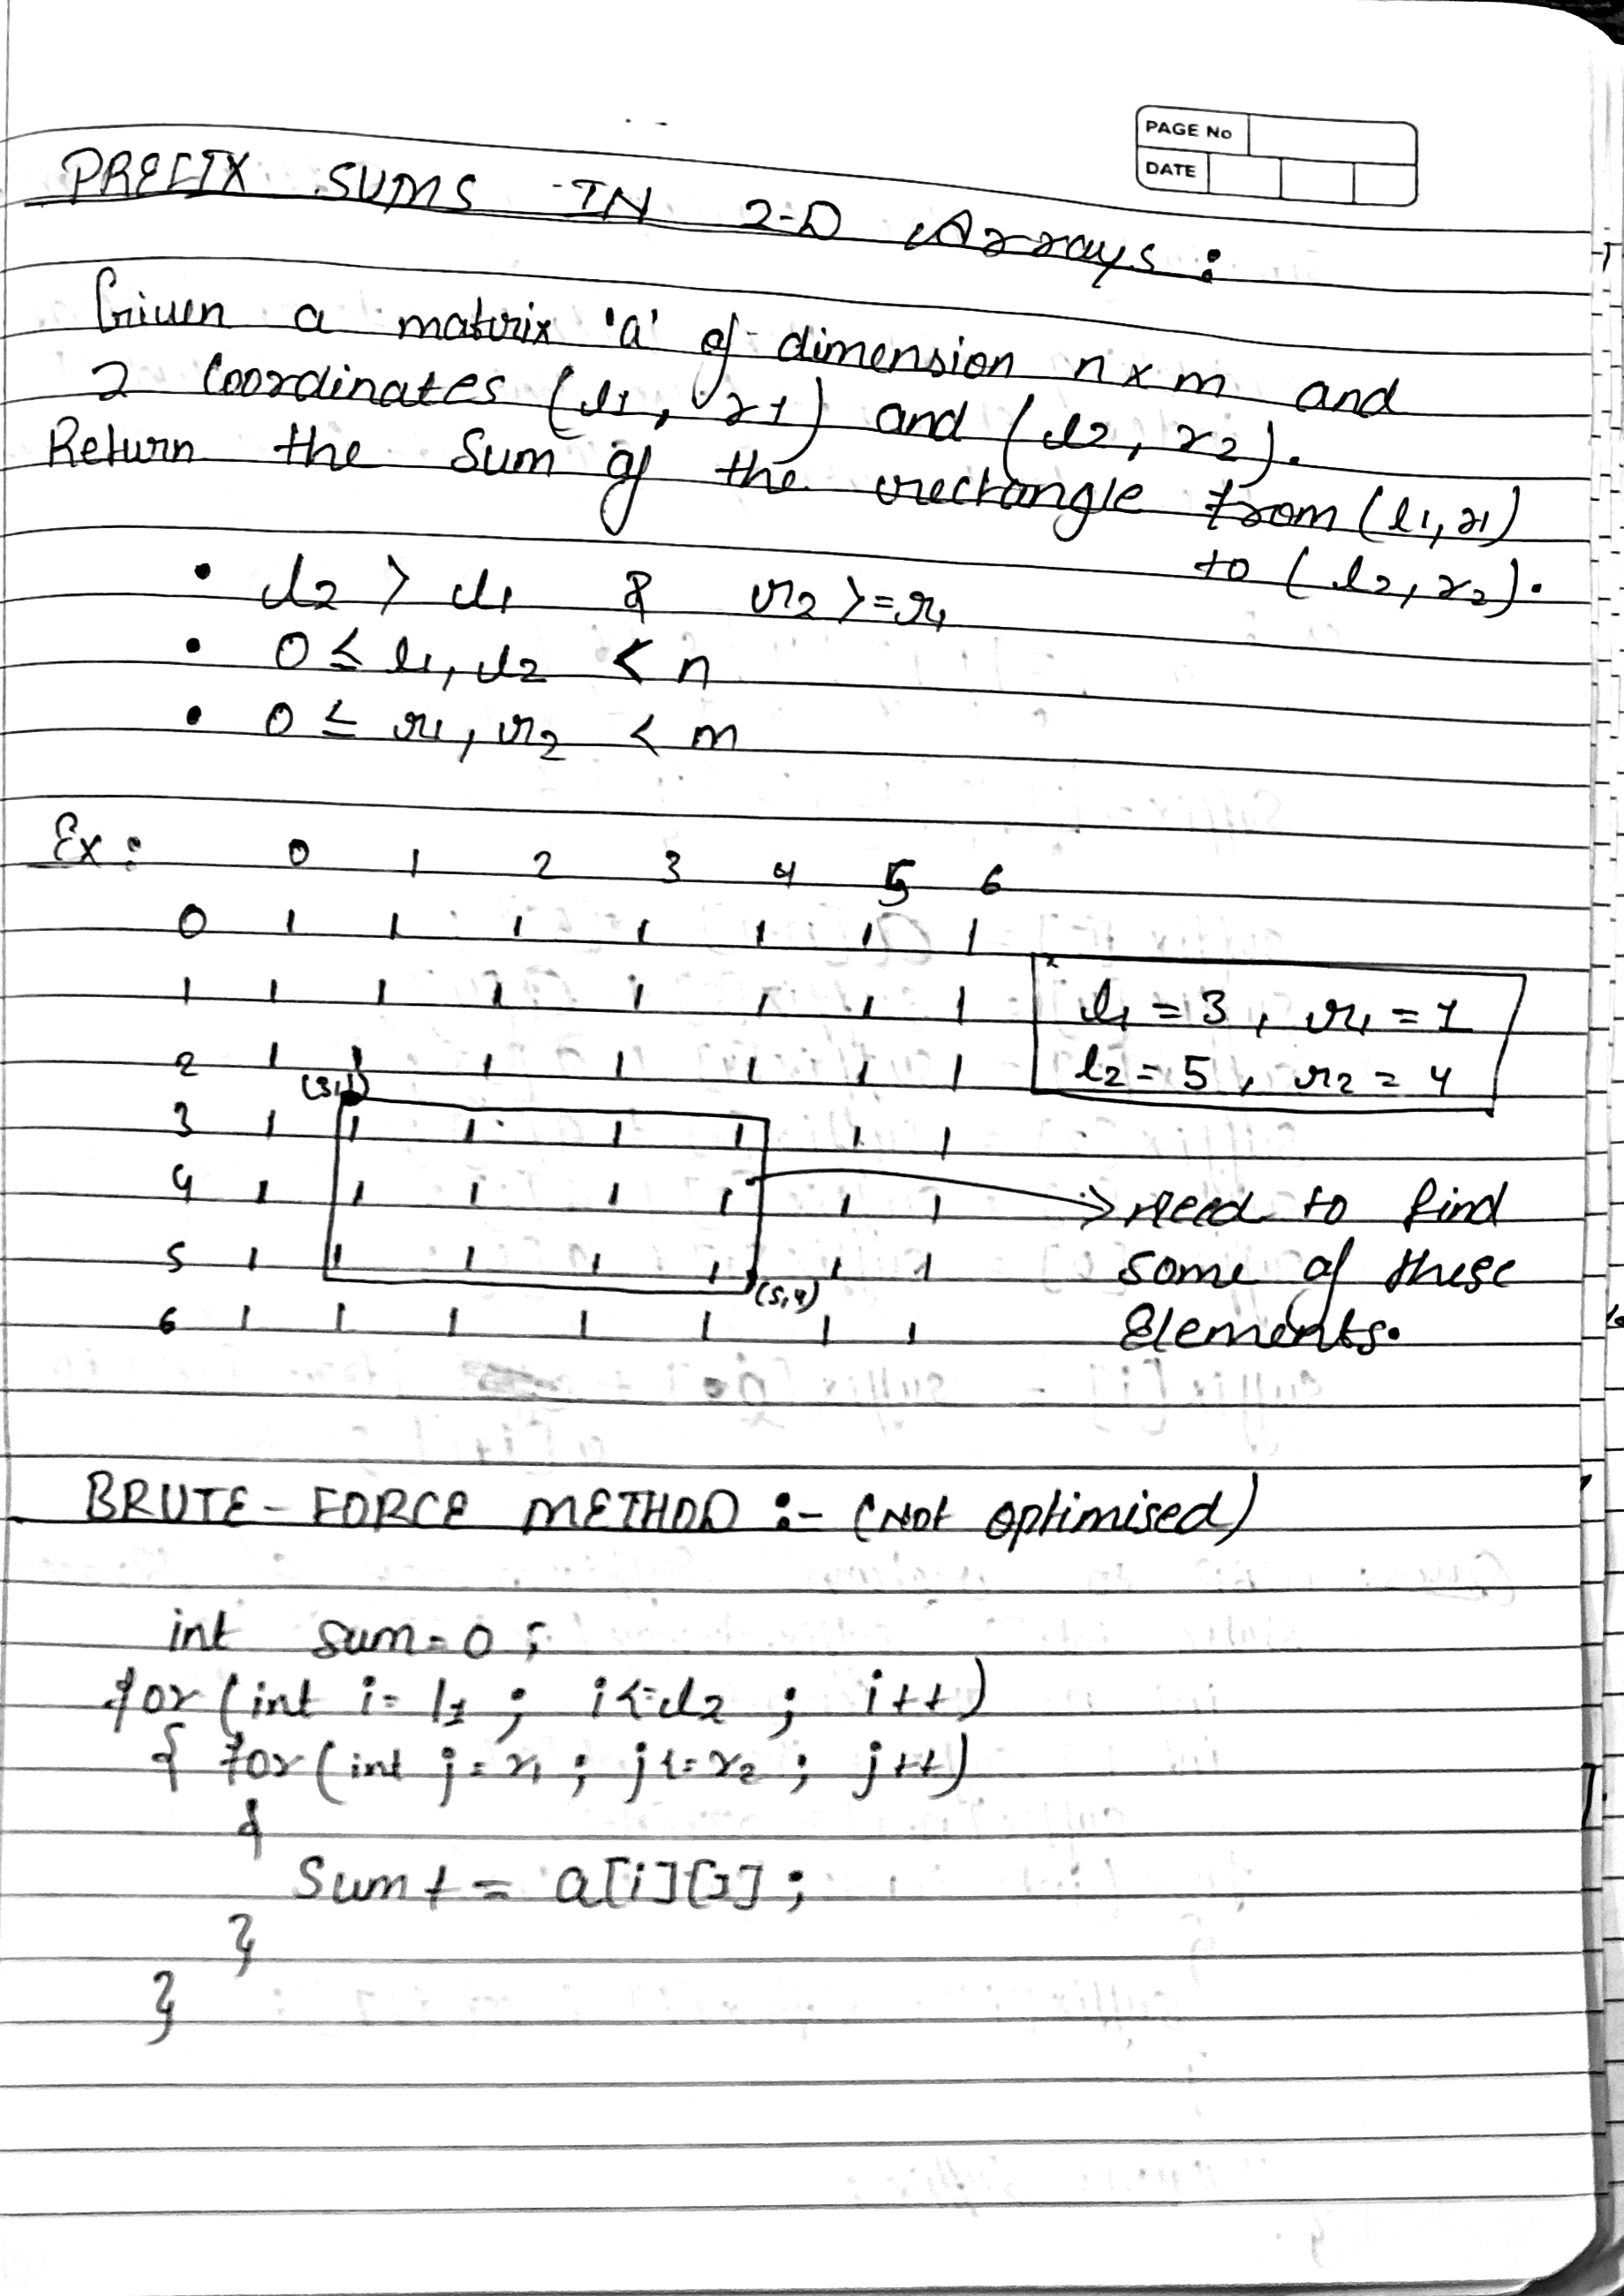 PAGE No
DATE
PREFIX SUMS IN 2-D Arrays :
Given a matrix 'a' of dimension n x m and
2 Coordinates (l1, r1) and (l2, r2).
Return the Sum of the rectangle from (l1, r1)
to (l2, r2).
• l2 > l1 & r2 >= r1
• 0 ≤ l1, l2 < n
• 0 ≤ r1, r2 < m
Ex : 0 1 2 3 4 5 6
0 1 1 1 1 1 1 1
1 1 1 1 1 1 1 1
l1 = 3, r1 = 1
2 1 1 1 1 1 1 1
l2 = 5, r2 = 4
(3,1)
3 1 1 1 1 1 1 1
4 1 1 1 1 1 1 1 → need to find
5 1 1 1 1 1 1 1 some of these
(5,4)
6 1 1 1 1 1 1 1 Elements.
BRUTE-FORCE METHOD :- (Not optimised)
int sum=0 ;
for (int i= l1 ; i<=l2 ; i++)
{ for (int j= r1 ; j<=r2 ; j++)
{
Sum += a[i][j] ;
}
}